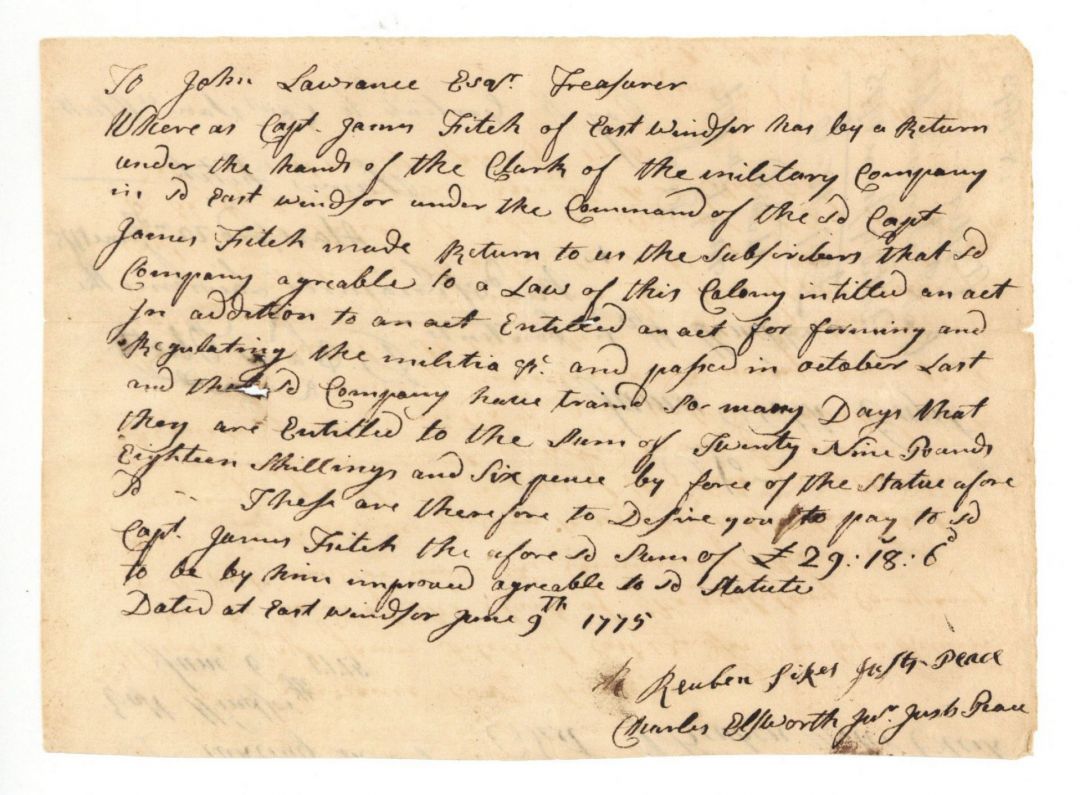 To John Lawrance Esqr. Treasurer
Where as Capt. James Fitch of East windsor has by a Return
under the hands of the Clark of the military Company
in sd East windsor under the Command of the sd Capt
James Fitch made Return to us the Subscribers that sd
Company agreable to a Law of this Colony intitled an act
In addition to an act Entitled an act for forming and
Regulating the militia &c. and passed in october Last
and that sd Company have traind so many Days that
they are Entitled to the Sum of Twenty Nine Pounds
Eighteen Shillings and Six pence by force of the Statue afore
sd - These are therefore to Desire you to pay to sd
Capt. James Fitch the afore sd Sum of £29:18:6d
to be by him improved agreable to sd Statute
Dated at East windsor June 9th 1775
Reuben Sikes Justs Peace
Charles Elsworth Junr. Just Peace